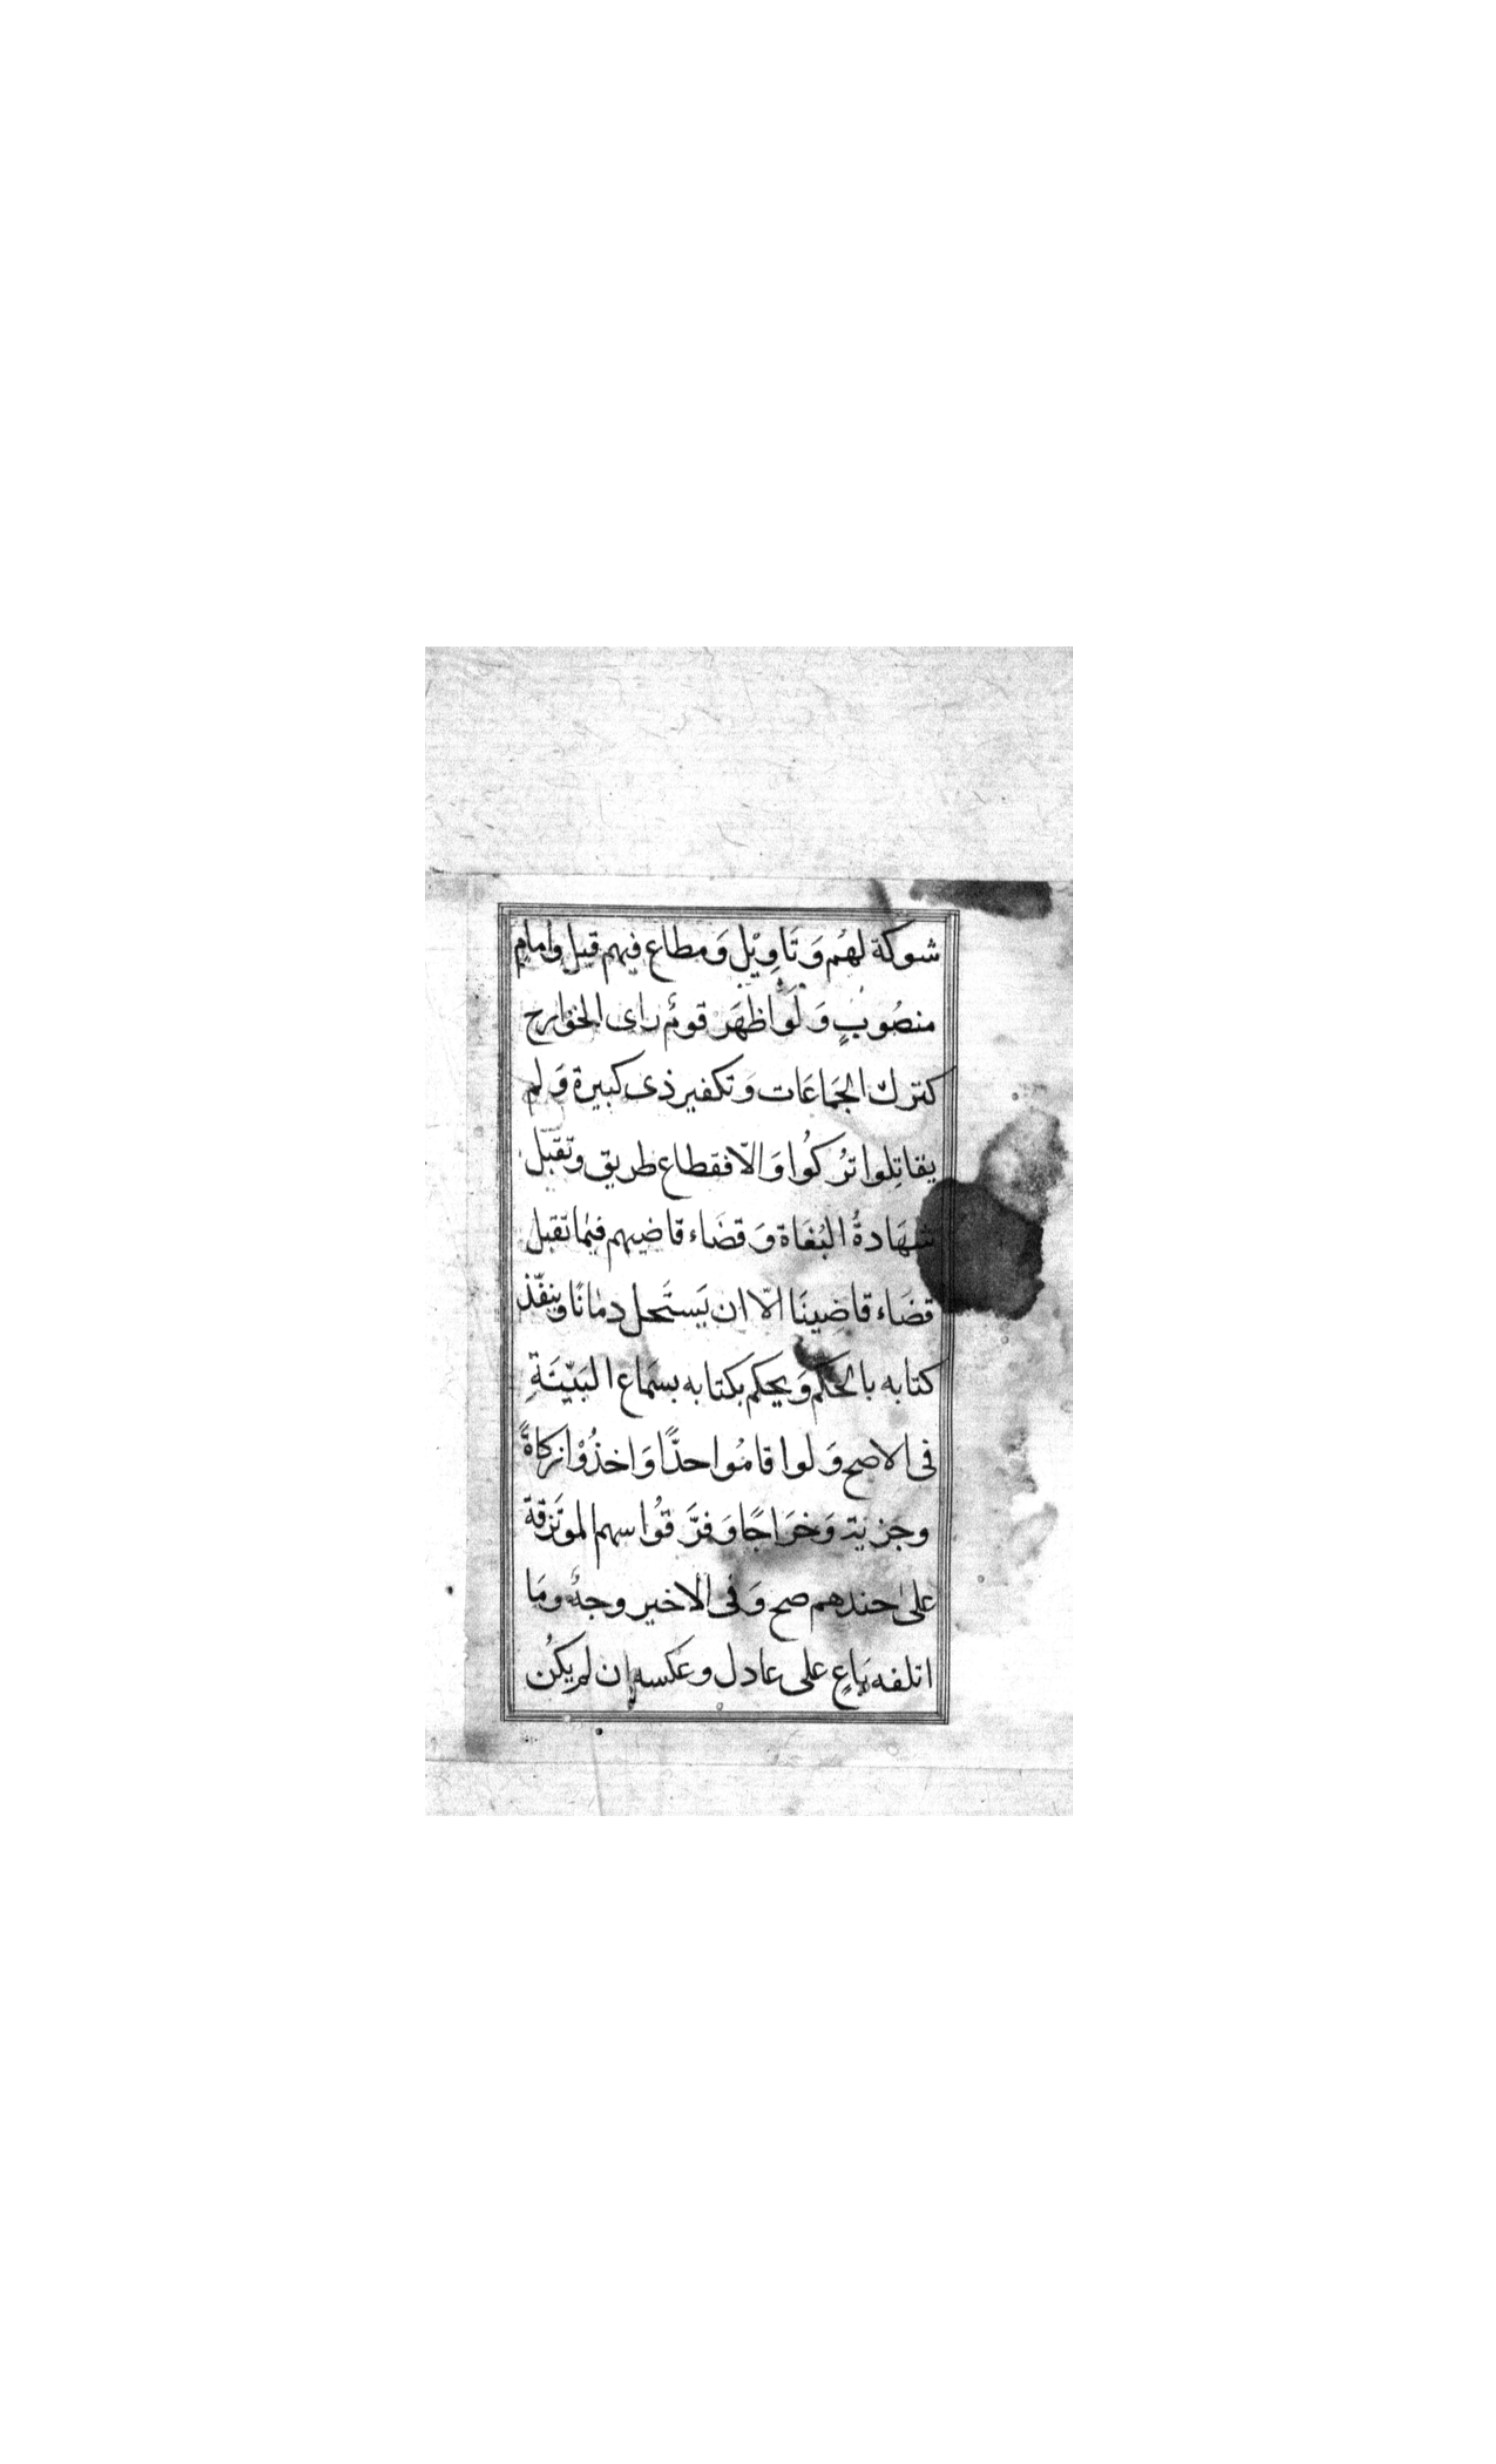 شوكة لهُم وَتَاوِيْل وَمطاع فيهم قيل وامامٍ
منصُوبٍ وَلَوا ظهَر قومٌ راى الخوارج
كترك الجَمَاعَات وَتكفير ذى كبيرة وَلم
يقاتِلوا تُركُوا وَالّا فقطاع طريق وتَقبَل
شَهَادةُ البُغَاة وَقضَاء قاضيهم فيما تقبل
قضَاء قاضِينَا الّا ان يَستَحل دمانَا وينفّذ
كتابه بالحكم وَيحكم بكتابه بسمَاع البَيّنَةِ
فى الاصح وَلوا قامُوا حدًّا وَاخذُوْا زكاةً
وجَزيَة وَخرَاجًا وَفرَّقوُا سهم المرتَزقة
علىٰ جندهم صح وَفى الاخير وجهٌ ومَا
اتلفه بَاغٍ على عادل وعكسه إن لم يكُن